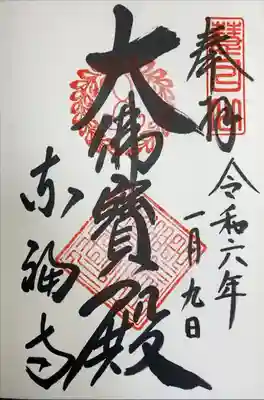 奉拝
令和六年
一月九日
大佛寳殿
東福寺